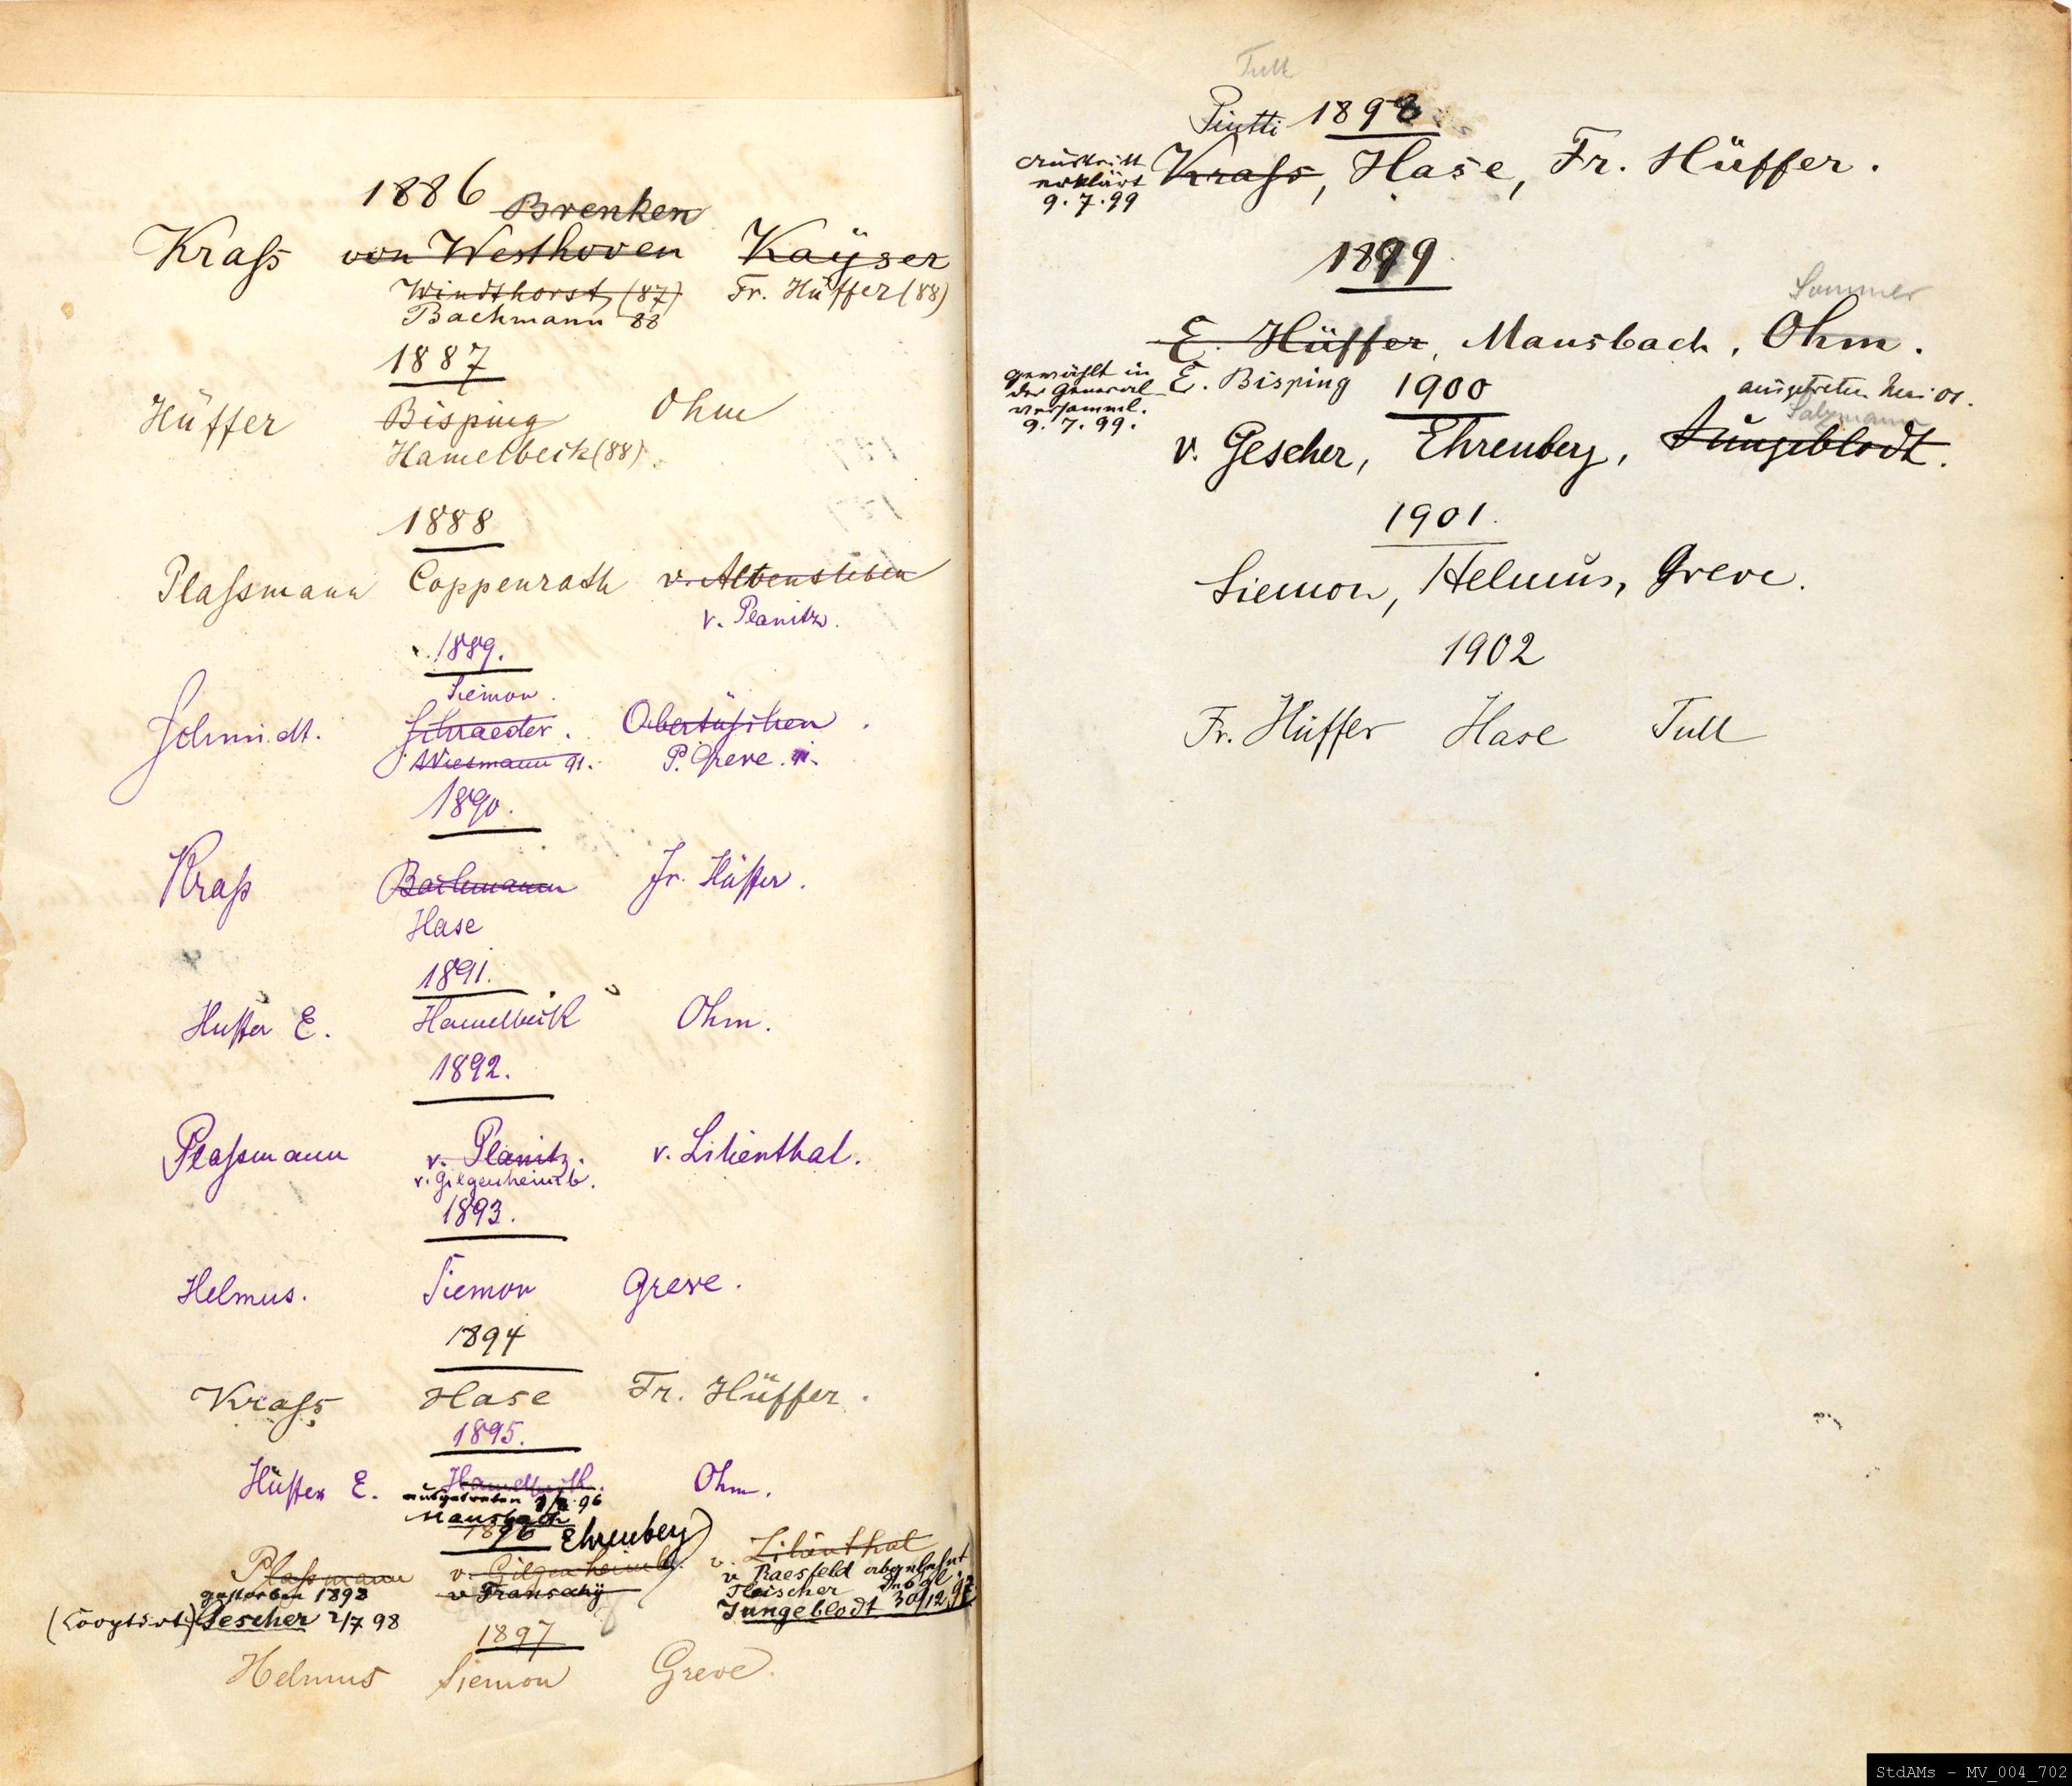 1886 Brenken
Krass von Westhoven Kayser
Windthorst (87) Fr. Hüffer (88)
Bachmann 88
1887
Hüffer Bisping Ohm
Hamelbeck (88)
1888
Plassmann Coppenrath v. Alvensleben
v. Planitz.
1889.
Siemon.
Schmidt. Schraeder. Obertüschen.
Wiesmann 91. P. Greve.
1890.
Krass Bachmann Fr. Hüffer.
Hase
1891.
Hüffer E. Hamelbeck Ohm.
1892.
Plassmann v. Planitz. v. Lilienthal.
v. Gilgenheimb.
1893.
Helmus. Siemon Greve.
1894
Krass Hase Fr. Hüffer.
1895.
Hüffer E. Hamelbeck. Ohm.
ausgetreten 96
Mausbach
1896 Ehrenberg
Plassmann v. Gilgenheimb. v. Lilienthal
gestorben 1898 v Fransecky v Raesfeld abgelehnt
Fleischer
(Cooptirt) Gescher 2/7 98 Jungeblodt 30/12 97
1897
Helmus Siemon Greve.
Tull
Piutti 1898
Austritt
erklärt
9.7.99
Krass, Hase, Fr. Hüffer.
1899
Sommer
E. Hüffer, Mausbach, Ohm.
gewählt in
der General-
versamml.
9.7.99.
E. Bisping 1900 ausgetreten 01.
Salzmann
v. Gescher, Ehrenberg, Jungeblodt.
1901.
Siemon, Helmus, Greve.
1902
Fr. Hüffer Hase Tull
StdAMs - MV_004_702